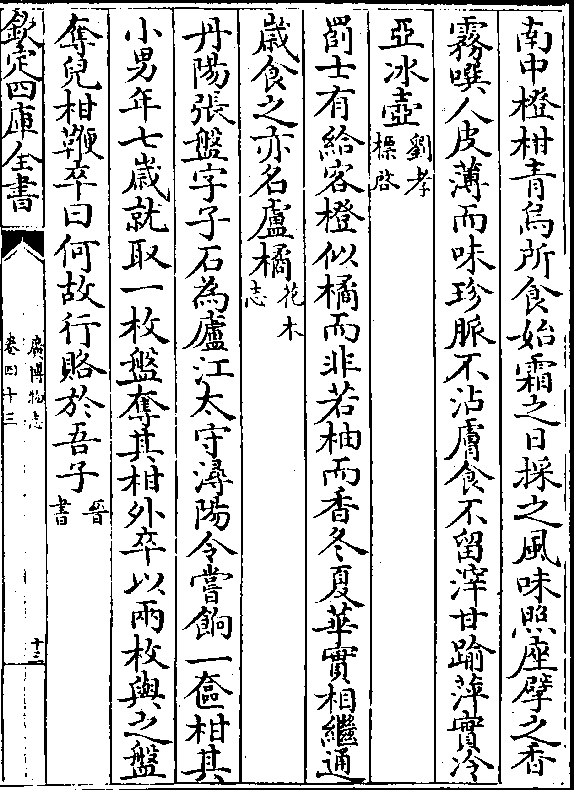 南中橙柑青鳥所食始霜之日採之風味照座劈之香
霧噀人皮薄而味珍脈不沾膚食不留滓甘踰萍實冷
亞冰壺劉孝
標啓
罰士有給客橙似橘而非若柚而香冬夏華實相繼通
歲食之亦名盧橘花木
志
丹陽張盤字子石為廬江太守潯陽令嘗餉一奩柑其
小男年七歲就取一枚盤奪其柑外卒以兩枚與之盤
奪兒柑鞭卒曰何故行賂於吾子晉
書
欽定四庫全書
廣博物志
卷四十三
十三